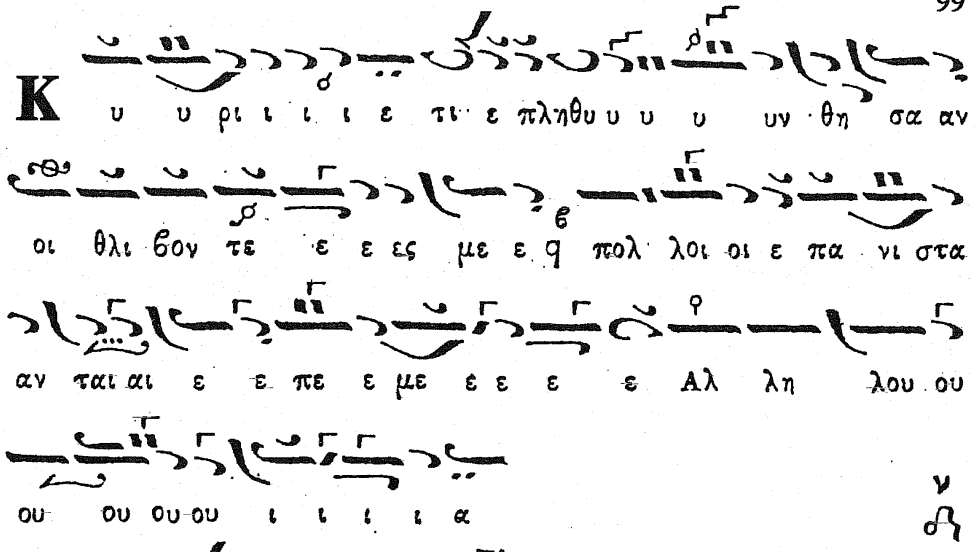 99
Κ υ υ ρι ι ι ι ε τι ε πληθυ υ υ υ υν θη σα αν
οι θλι βον τε ε ε ες με ε q πολ λοι οι ε πα νι στα
αν ται αι ε ε πε ε με ε ε ε ε Αλ λη λου ου
ου ου ου ου ι ι ι ι α
ν